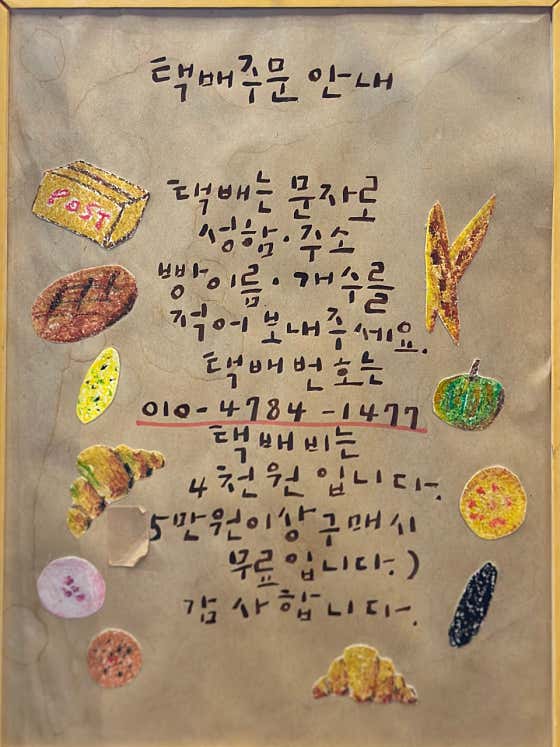 택배주문 안내
POST
택배는 문자로
성함·주소
빵이름·개수를
적어 보내주세요.
택배번호는
010-4784-1477
택배비는
4천원입니다.
5만원이상구매시
무료입니다.)
감사합니다.